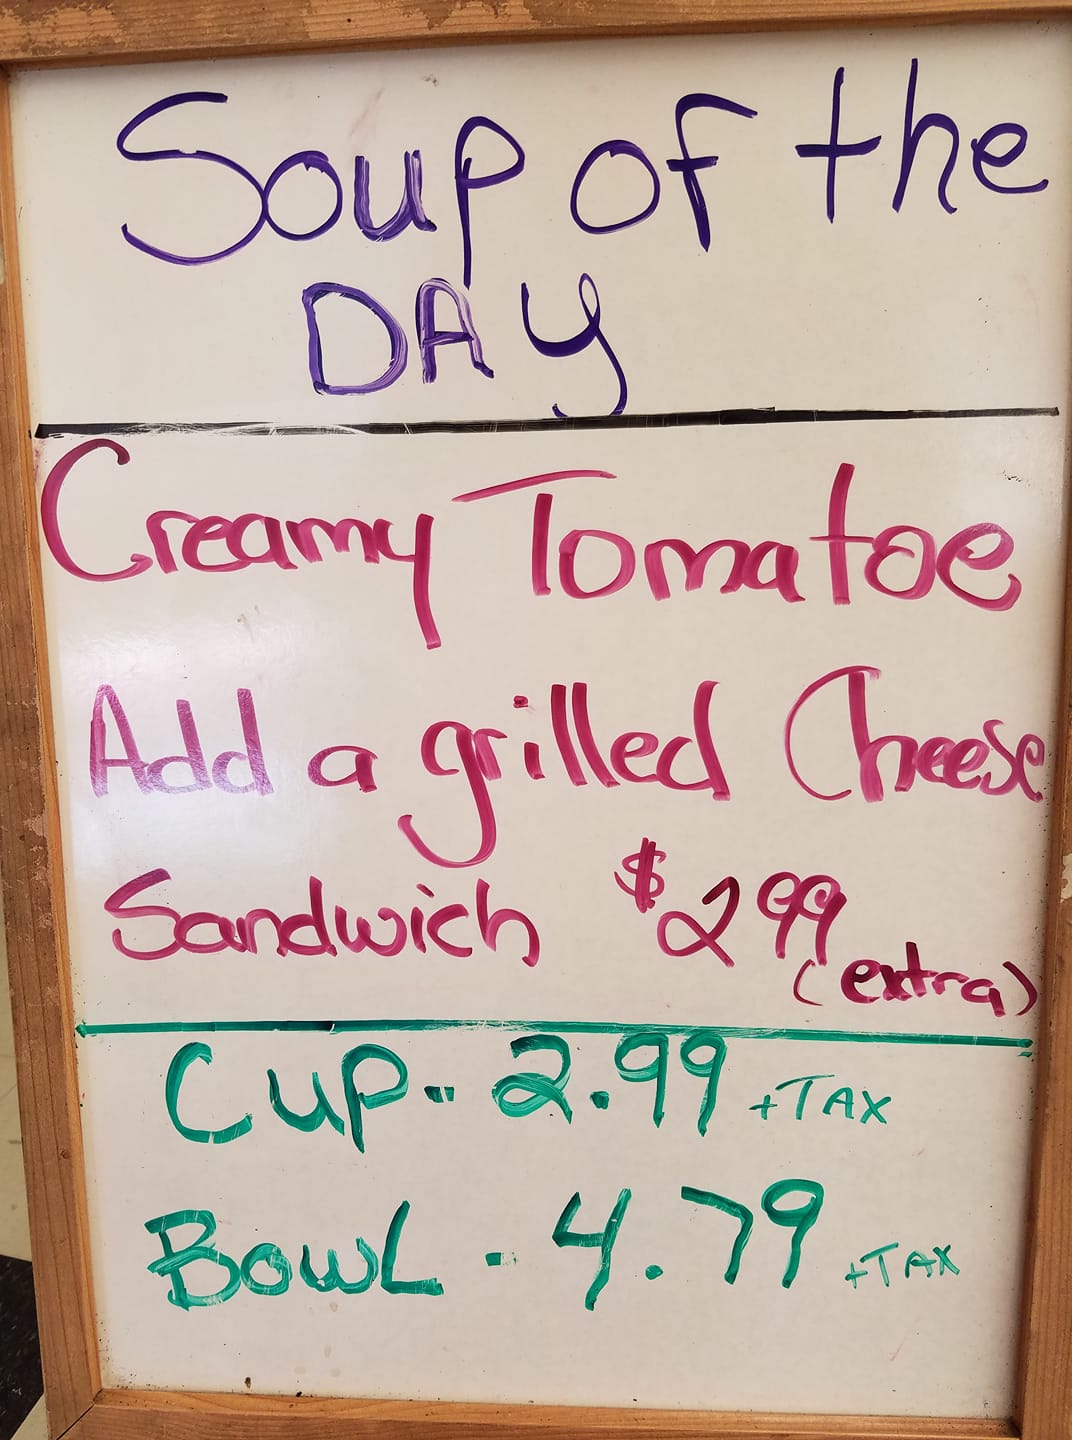 Soup of the
DAy
Creamy Tomatoe
Add a grilled Cheese
Sandwich $2 99
(extra)
Cup - 2.99 +TAX
BowL - 4.79 +TAX